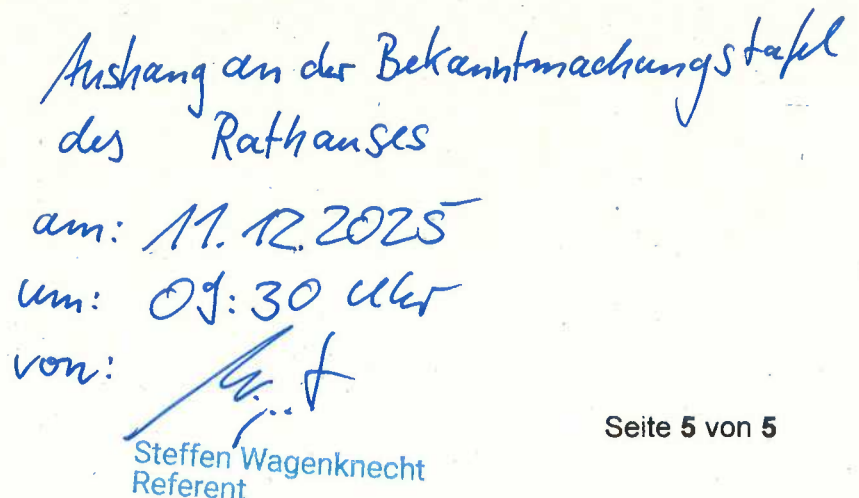 Aushang an der Bekanntmachungstafel
des Rathauses
am: 11.12.2025
um: 09:30 Uhr
von:
Steffen Wagenknecht
Referent
Seite 5 von 5